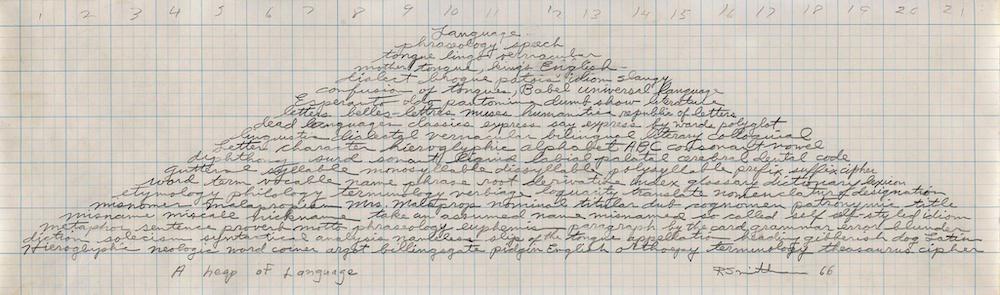 1 2 3 4 5 6 7 8 9 10 11 12 13 14 15 16 17 18 19 20 21
Language
phraseology speech
tongue lingo vernacular
mother tongue, king's English
dialect brogue patois idiom slang
confusion of tongues, Babel universal language
Esperanto Ido pantomime dumb show literature
letters belles-lettres muses humanities republic of letters
dead languages classics express say express by words polyglot
linguistic dialectal vernacular bilingual literary colloquial
Letter character hieroglyphic alphabet ABC consonant vowel
diphthong surd sonant liquid labial palatal cerebral dental code
guttural syllable monosyllable dissyllable polysyllable prefix suffix cipher
word term vocable name phrase root derivative index glossary dictionary lexicon
etymology philology terminology verbiage loquacity translate nomenclature designation
misnomer malapropism Mrs. Malaprop nominal titular dub cognomen patronymic title
misname miscall nickname take an assumed name misnamed so called self self-styled idiom
metaphor sentence proverb motto phraseology euphemism paragraph by the card grammar error blunder
diction solecism syntactical analysis parts of the tongue appellation heading gibberish dog Latin
Hieroglyph neologic word coiner argot billingsgate pidgin English orthoepy terminology thesaurus cipher
A heap of Language
RSmithson 66